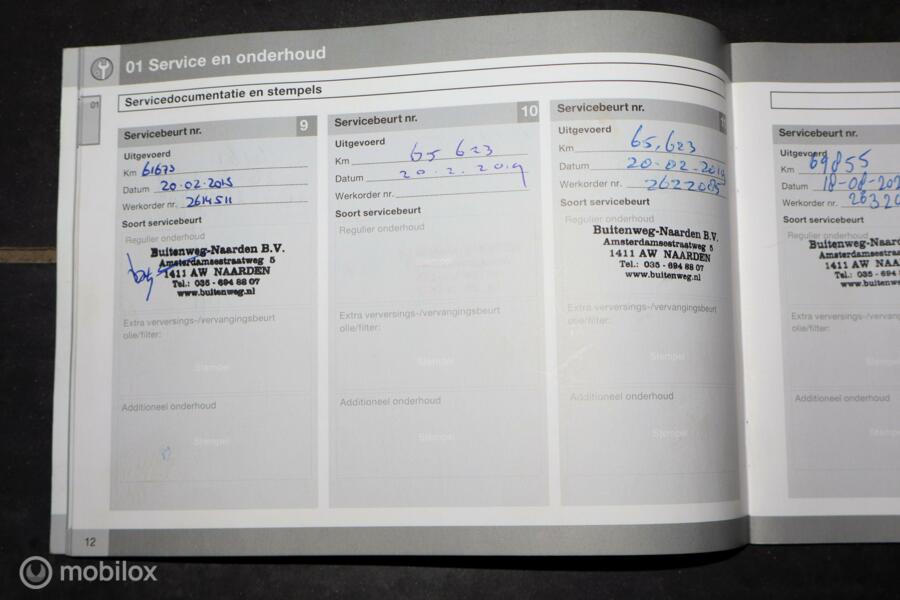 01 Service en onderhoud
01
Servicedocumentatie en stempels
Servicebeurt nr. 9
Uitgevoerd
Km 61673
Datum 20-02-2015
Werkorder nr. 2614511
Soort servicebeurt
Regulier onderhoud
Buitenweg-Naarden B.V.
Amsterdamsestraatweg 5
1411 AW NAARDEN
Tel.: 035 - 694 88 07
www.buitenweg.nl
Extra verversings-/vervangingsbeurt
olie/filter:
Stempel
Additioneel onderhoud
Stempel
Servicebeurt nr. 10
Uitgevoerd
Km 65 623
Datum 20.2.2019
Werkorder nr.
Soort servicebeurt
Regulier onderhoud
Extra verversings-/vervangingsbeurt
olie/filter:
Stempel
Additioneel onderhoud
Stempel
Servicebeurt nr. 11
Uitgevoerd
Km 65.623
Datum 20-02-2019
Werkorder nr. 2622085
Soort servicebeurt
Regulier onderhoud
Buitenweg-Naarden B.V.
Amsterdamsestraatweg 5
1411 AW NAARDEN
Tel.: 035 - 694 88 07
www.buitenweg.nl
Extra verversings-/vervangingsbeurt
olie/filter:
Stempel
Additioneel onderhoud
Stempel
Servicebeurt nr.
Uitgevoerd
Km 69855
Datum 18-08-202
Werkorder nr. 26320
Soort servicebeurt
Regulier onderhoud
Buitenweg-Naard
Amsterdamsestraa
1411 AW NAA
Tel.: 035 - 694
www.buitenw
Extra verversings-/vervangings
olie/filter:
Stempel
Additioneel onderhoud
Stempel
12
mobilox